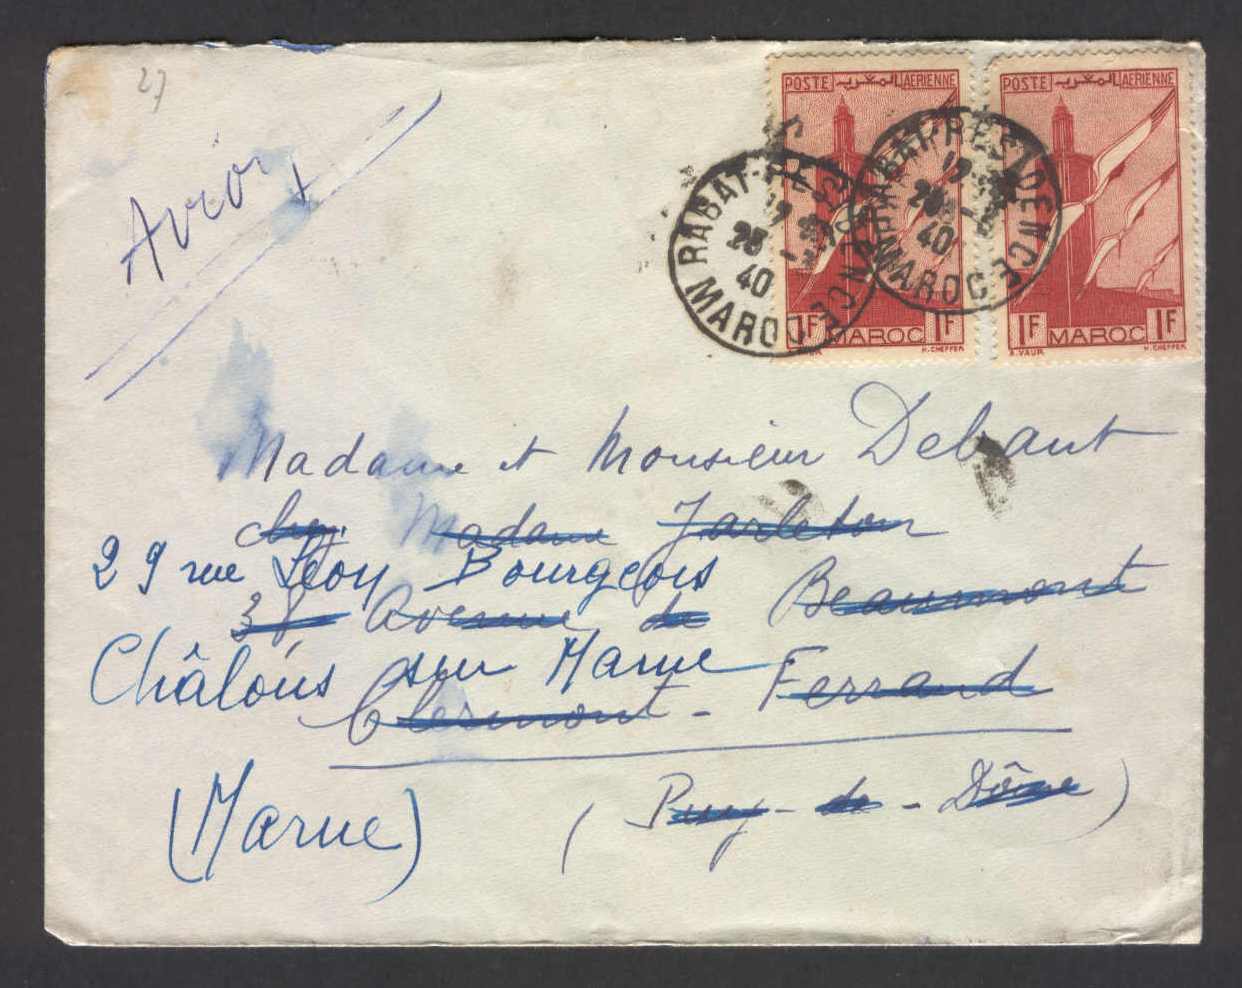 27
Avion
POSTE المغرب AERIENNE
1F MAROC 1F
H. CHEFFER
POSTE المغرب AERIENNE
1F MAROC 1F
A. VAUR H. CHEFFER
RABAT-RÉSIDENCE
40
MAROC
RABAT-RÉSIDENCE
40
MAROC
Madame et Monsieur Debaut
chez Madame Jarleton
29 rue Léon Bourgeois
38 Avenue de Beaumont
Châlons sur Marne
Clermont-Ferrand
(Marne)
(Puy-de-Dôme)